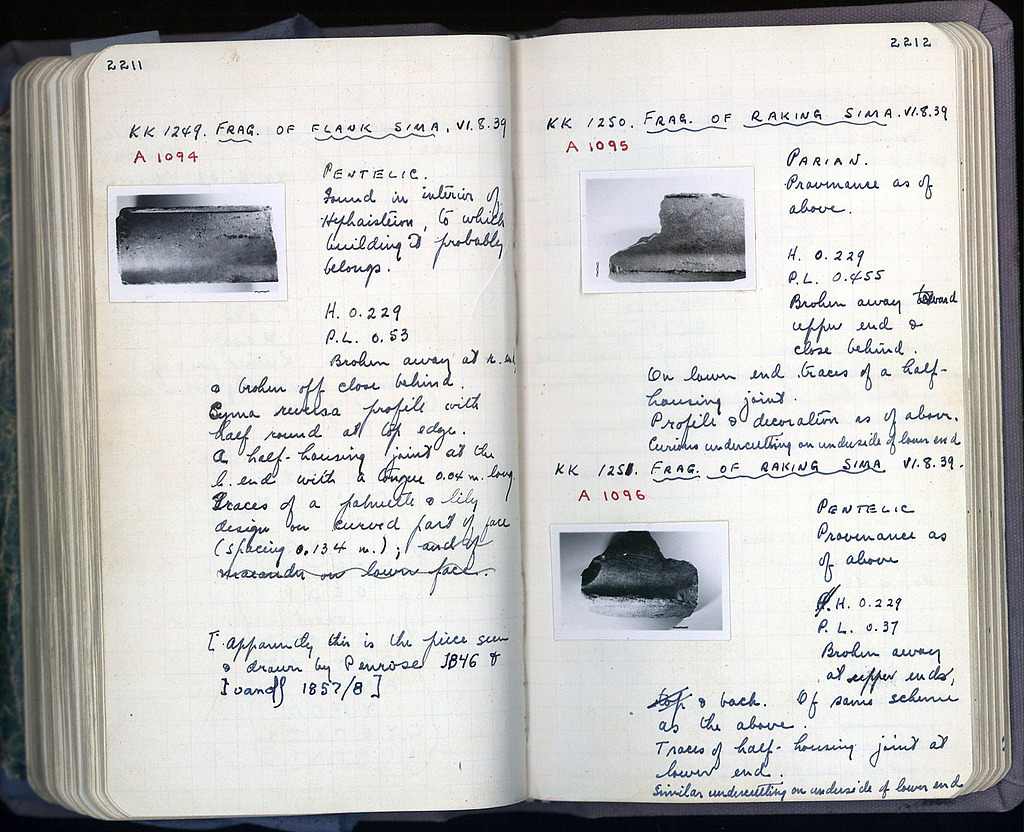 2211
KK 1249. FRAG. OF FLANK SIMA. VI.8.39
A 1094
PENTELIC.
Found in interior of
Hephaisteion, to which
building it probably
belongs.
H. 0.229
P.L. 0.53
Broken away at r. end
& broken off close behind.
Cyma reversa profile with
half round at top edge.
A half-housing joint at the
l. end with a tongue 0.04 m. long
Traces of a palmette & lily
design on curved part of face
(spacing 0.134 m.); and of
maeander on lower face.
[Apparently this is the piece seen
& drawn by Penrose 1846 &
Ivanoff 1857/8]
2212
KK 1250. FRAG. OF RAKING SIMA. VI.8.39
A 1095
PARIAN.
Provenance as of
above.
H. 0.229
P.L. 0.455
Broken away toward
upper end &
close behind.
On lower end traces of a half-
housing joint.
Profile & decoration as of above.
Curious undercutting on underside of lower end
KK 1251. FRAG. OF RAKING SIMA VI.8.39.
A 1096
PENTELIC
Provenance as
of above
H. 0.229
P.L. 0.37
Broken away
at upper ends,
top & back. Of same scheme
as the above.
Traces of half-housing joint at
lower end.
Similar undercutting on underside of lower end